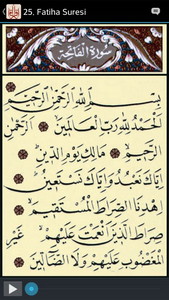 25. Fatiha Suresi
سُورَةُ الْفَاتِحَةِ
بِسْمِ اللّٰهِ الرَّحْمٰنِ الرَّحِيمِ
اَلْحَمْدُ لِلّٰهِ رَبِّ الْعَالَمِينَ اَلرَّحْمٰنِ
الرَّحِيمِ مَالِكِ يَوْمِ الدِّينِ
اِيَّاكَ نَعْبُدُ وَاِيَّاكَ نَسْتَعِينُ
اِهْدِنَا الصِّرَاطَ الْمُسْتَقِيمَ
صِرَاطَ الَّذِينَ اَنْعَمْتَ عَلَيْهِمْ غَيْرِ
الْمَغْضُوبِ عَلَيْهِمْ وَلَا الضَّالِّينَ